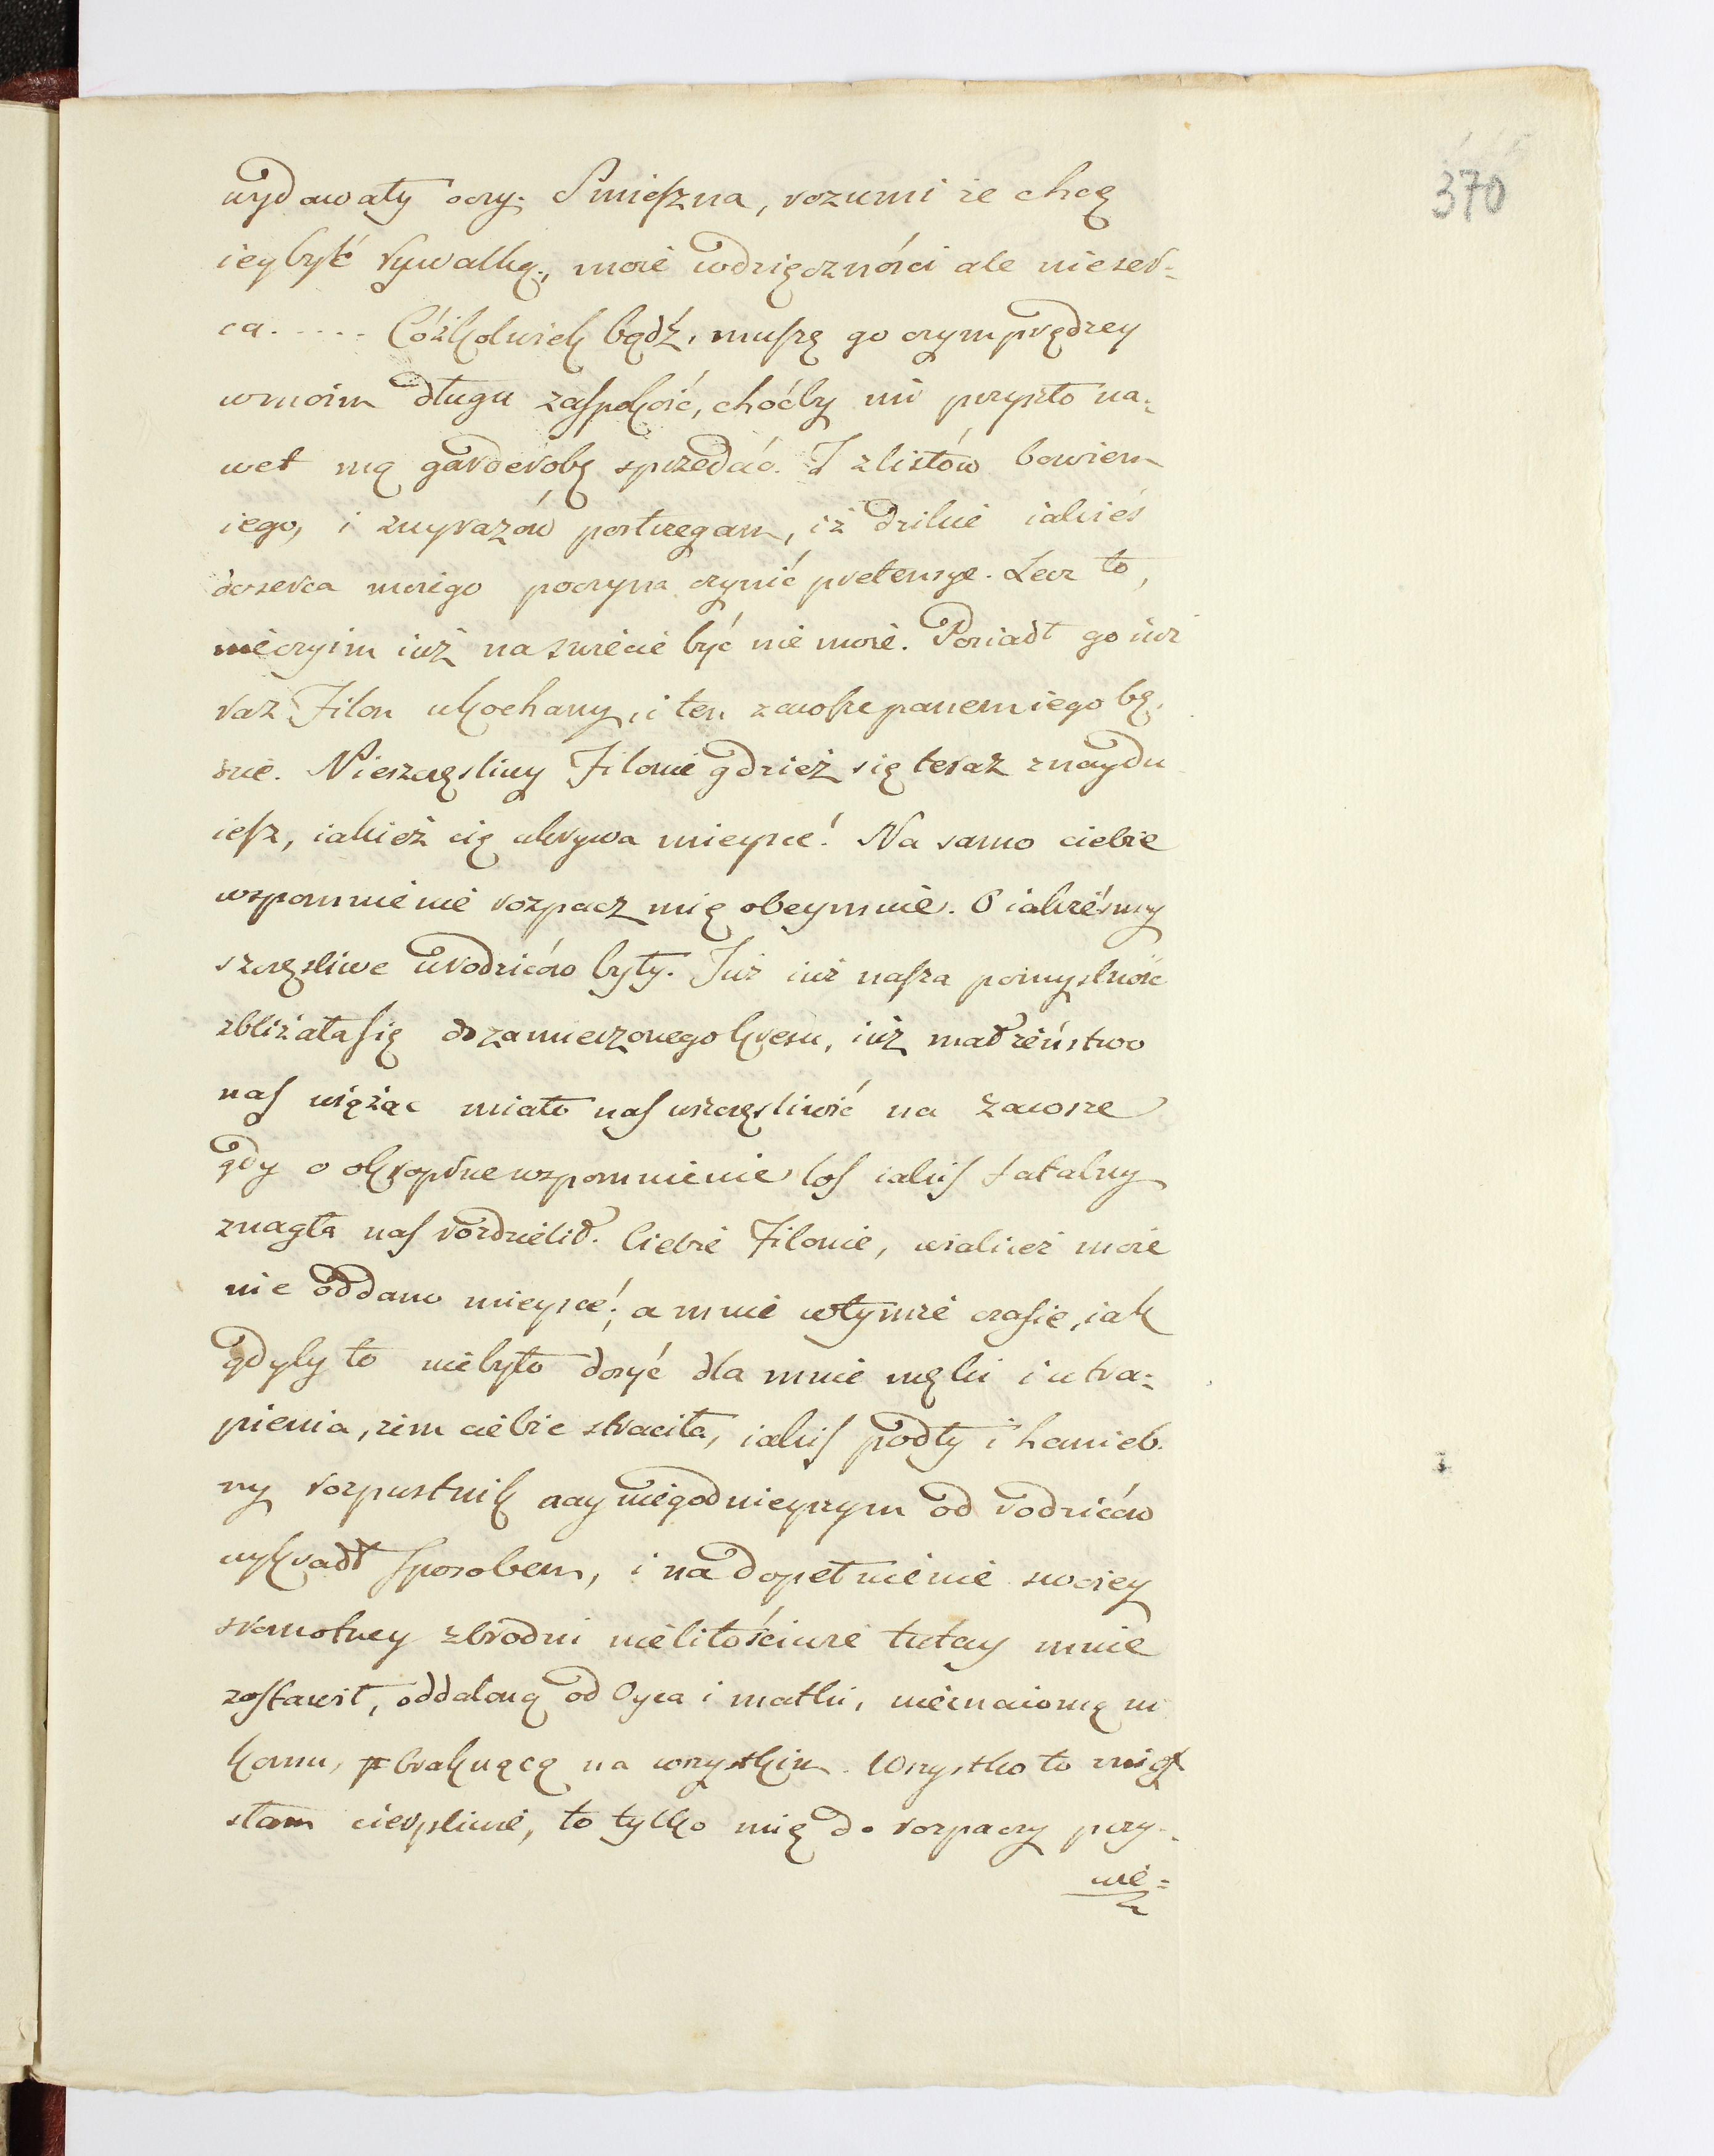 370
wydawały oczy. Smieszna, rozumi że chcę
iey być rywalką, może wdzięczności ale nie ser-
ca..... Cóżkolwiek bądź, muszę go czym prędzey
w moim długu zaspokoić, choćby mi przyszło na-
wet mą garderobę sprzedać. I z listów bowiem
iego, i z wyrazów postrzegam, iż dzikie iakieś
do serca moiego poczyna czynić pretensye. Lecz to,
nieczyim iuż na świecie być nie może. Posiadł go iuż
raz Filon ukochany, i ten zawsze panem iego bę-
dzie. Nieszczęsliwy Filonie gdzież się teraz znaydu
iesz, iakież cię ukrywa mieysce! Na samo ciebie
wspomnienie rozpacz mię obeymuie. O iakżeśmy
szczęsliwe u rodziców były. Już iuż nasza pomyslność
zbliżała się do zamierzonego kresu, iuż małżeństwo
nas wiążąc miało nas uszczęsliwić na zawsze
gdy o okropne wspomnienie los iakis fatalny
znagła nas rozdzielił. Ciebie Filonie, w iakież może
nie oddano mieysce!; a mnie w tymże czasie, iak
gdyby to nie było dosyć dla mnie męki i utra-
pienia, żem ciebie straciła, iakis podły i hanieb-
ny rozpustnik nayniegodnieyszym od rodziców
wykradł sposobem, i na dopełnienie swoiey
sromotney zbrodni nielitościwie tutay mnie
zostawił, oddaloną od Oyca i matki, nieznaiomą ni
komu, brakuącą na wszystkim. Wszystko to znio
słam cierpliwie, to tylko mię do rozpaczy przy-
wie-